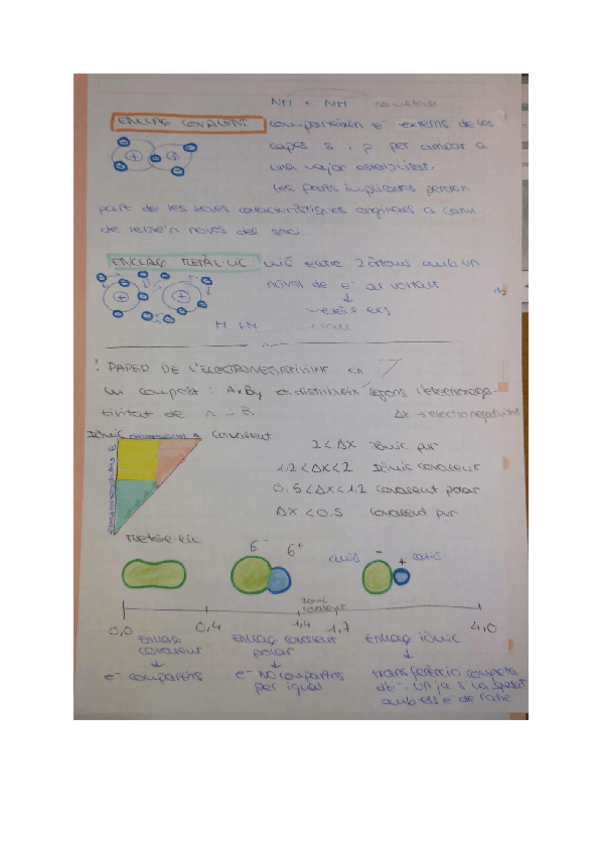 NM + NM no metalls
ENLLAÇ COVALENT: comparteixen e⁻ externs de les
capes s i p per arribar a
una major estabilitat.
Les parts implicades perden
part de les seves característiques originals a canvi
de rebre'n noves del soci
ENLLAÇ METÀL·LIC: unió entre 2 àtoms amb un
núvol de e⁻ al voltant
↓
M + M
! PAPER DE L'ELECTRONEGATIVITAT en
un compost: AxBy es distribueix segons l'electronega-
tivitat de A i B Δx → electronegativitat
Iònic covalent
2 < Δx Iònic pur
1,2 < Δx < 2 Iònic covalent
0.5 < Δx < 1,2 covalent polar
Δx < 0.5 covalent pur
metàl·lic
δ⁻ δ⁺ anió - + catió
iònic
covalent
0,0 0,4 1,4 1,7 4,0
Enllaç covalent
↓
e⁻ compartits
Enllaç covalent polar
↓
e⁻ NO compartits per igual
Enllaç iònic
↓
transferència completa
d'e⁻. Un ja s'ha quedat
amb els e⁻ de l'altre